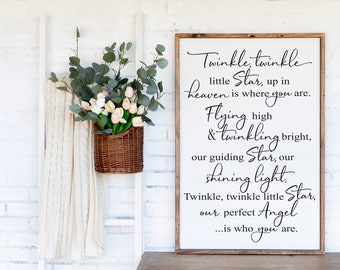 Twinkle, twinkle
little Star, up in
heaven is where you are.
Flying high
& twinkling bright,
our guiding Star, our
shining light.
Twinkle, twinkle little Star,
our perfect Angel
...is who you are.